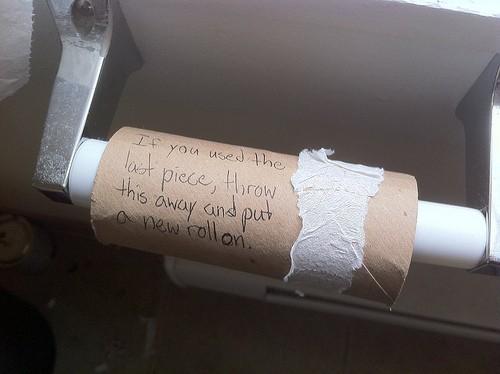 If you used the
last piece, throw
this away and put
a new roll on.